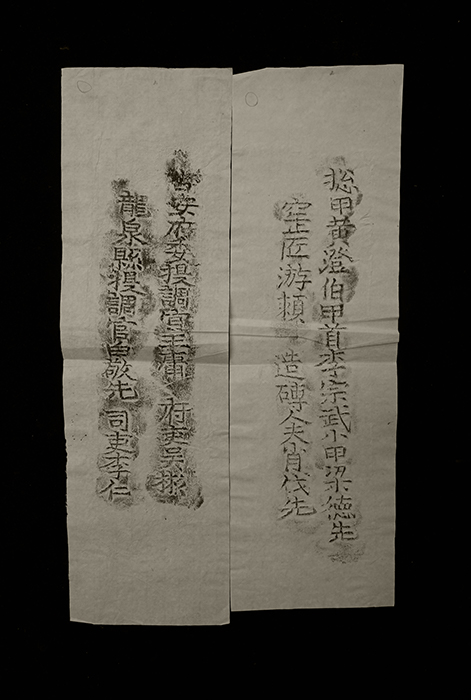 揔甲黄澄伯甲首李宗武小甲梁德先
窑匠游賴 造磚人夫肖 先
吉安府委提調官王庸 府吏吴彬
龍泉縣提調官 敬先 司吏李仁